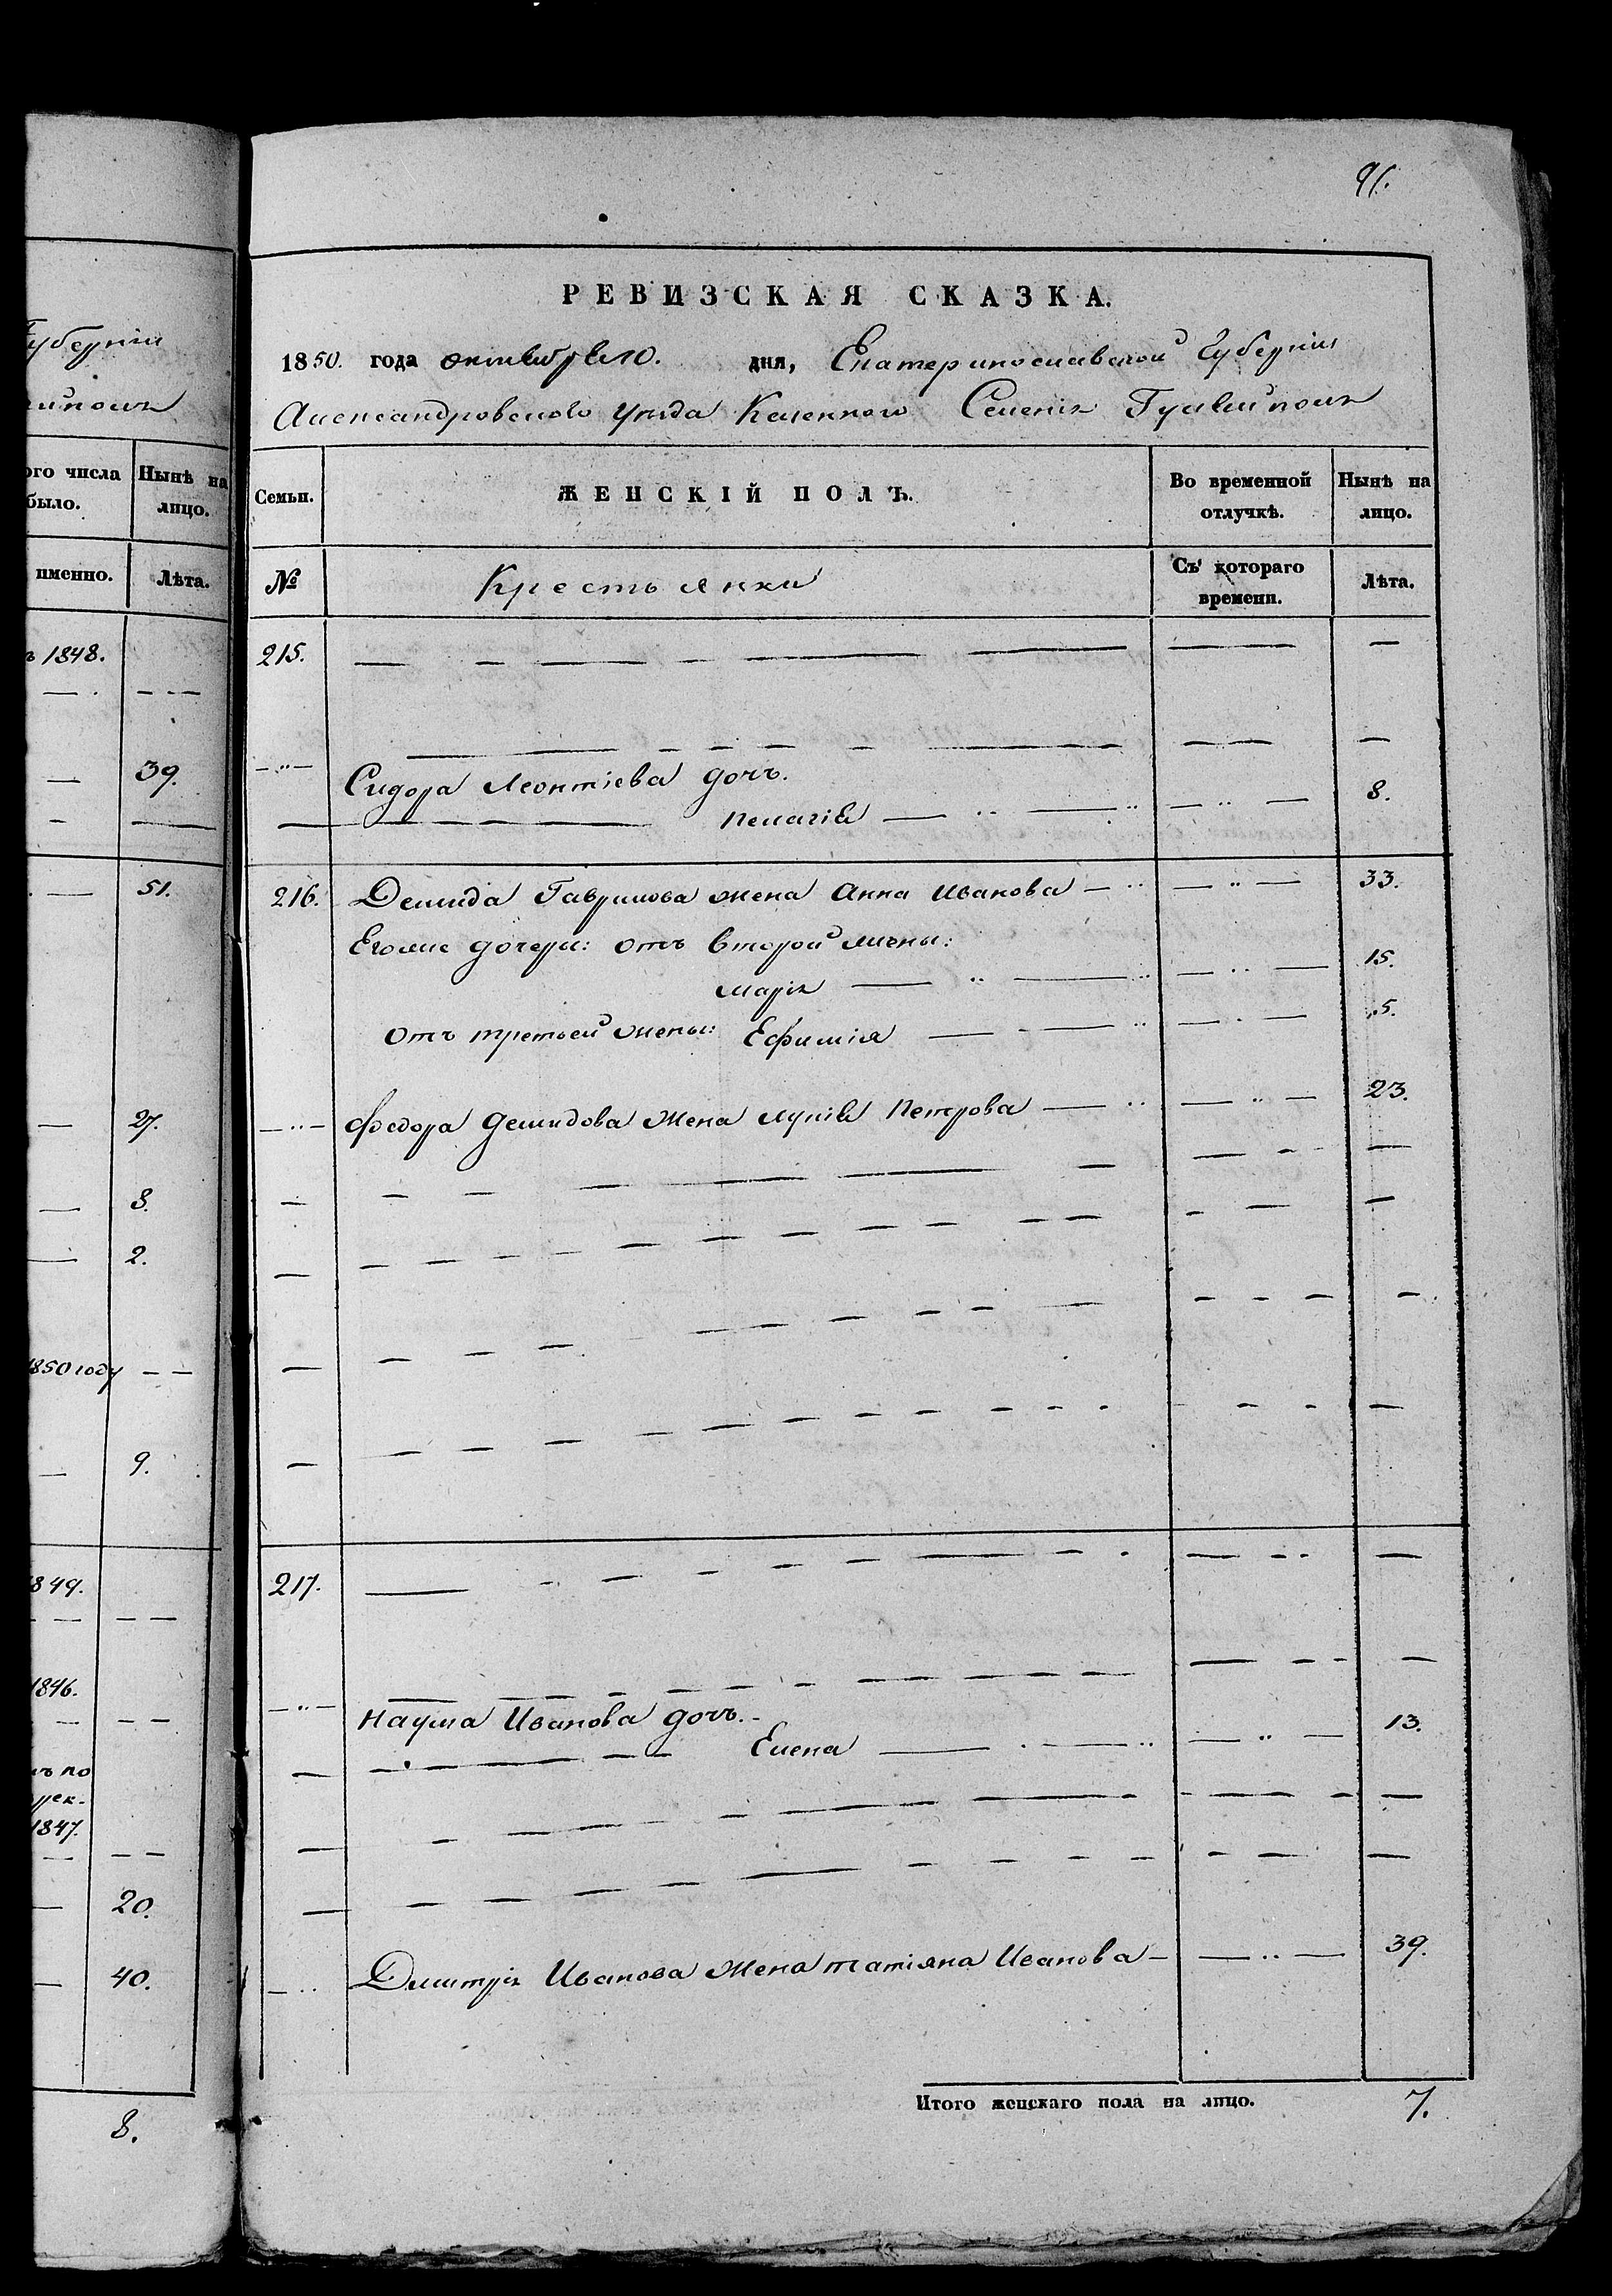 91.
РЕВИЗСКАЯ СКАЗКА.
1850. года октября 10. дня, Екатеринославской Губернии
Александровского Уезда Казенного Селения Гуляйполя
Семьи. ЖЕНСКІЙ ПОЛЪ. Во временной отлучкѣ. Нынѣ на лицо.
№ Крестьянки Съ котораго времени. Лѣта.
215. — — — —
Сидора Леонтіева дочь.
Пелагія — 8.
216. Демида Гаврилова жена Анна Иванова — 33.
Егоже дочери: отъ второй жены:
Марія — 15.
отъ третьей жены: Ефимія — 5.
Федора Демидова жена Лукія Петрова — 23.
217. — — — —
Наума Иванова дочь.
Елена — 13.
Дмитрія Иванова жена Татіяна Иванова — 39.
Итого женскаго пола на лицо. 7.
Губерніи
ого числа было. Нынѣ на лицо.
именно. Лѣта.
1848.
39.
51.
27.
8.
2.
1850 году
9.
1849.
1846.
по
1847.
20.
40.
8.